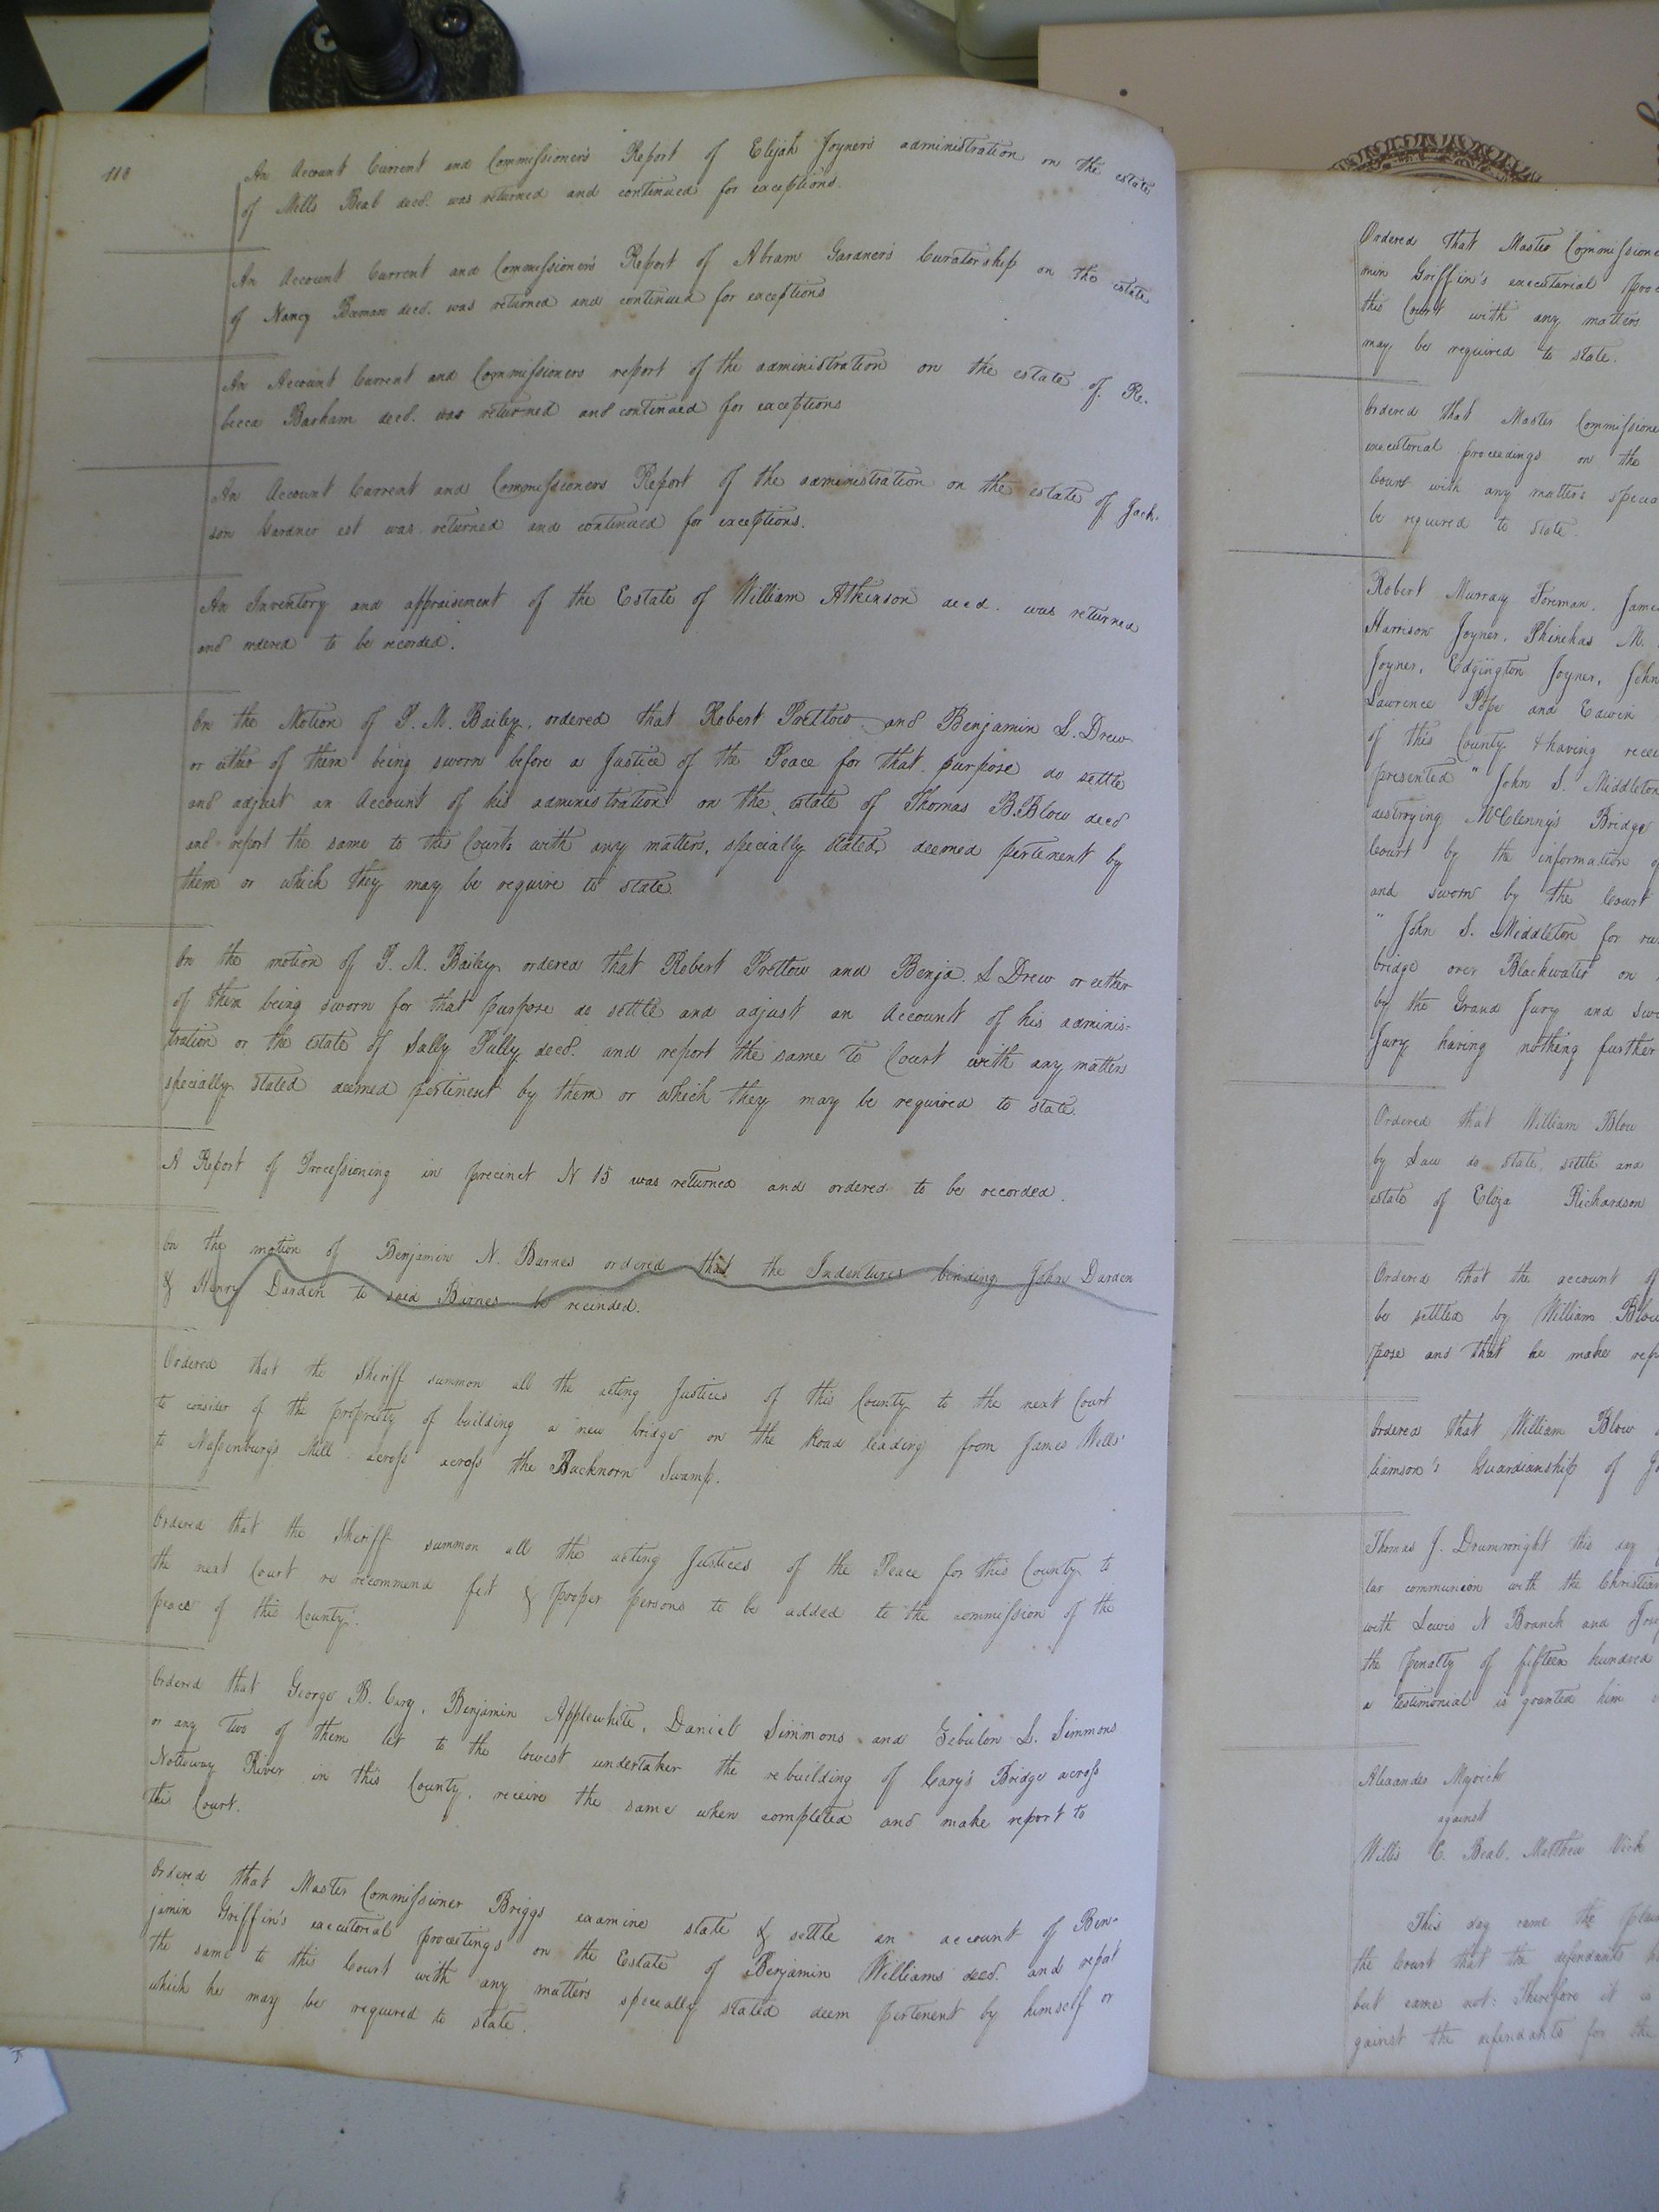 118
An Account Current and Commissioner's Report of Elijah Joyner's administration on the estate
of Mills Beal decd. was returned and continued for exceptions.
An Account Current and Commissioner's Report of Abram Gardner's Curatorship on the estate
of Nancy Beeman decd. was returned and continued for exceptions
An Account Current and Commissioners report of the administration on the estate of Re-
becca Barham decd. was returned and continued for exceptions
An Account Current and Commissioners Report of the administration on the estate of Jack-
son Gardner est was returned and continued for exceptions.
An Inventory and appraisement of the Estate of William Atkinson decd. was returned
and ordered to be recorded.
On the Motion of P. M. Bailey, ordered that Robert Prettow and Benjamin S. Drew
or either of them being sworn before a Justice of the Peace for that purpose do settle
and adjust an Account of his administration on the estate of Thomas B. Blow decd
and report the same to this Court with any matters, specially stated, deemed pertenent by
them or which they may be require to state
On the motion of P. M. Bailey ordered that Robert Prettow and Benja. S Drew or either
of them being sworn for that purpose do settle and adjust an Account of his adminis-
tration or the estate of Sally Pully decd. and report the same to Court with any matters
specially stated deemed pertinent by them or which they may be required to state.
A Report of Processioning in precinct N 15 was returned and ordered to be recorded.
On the motion of Benjamin N. Barnes ordered that the Indentures binding John Darden
& Henry Darden to said Barnes be recinded.
Ordered that the Sheriff summon all the acting Justices of this County to the next Court
to consider of the propriety of building a new bridge on the Road leading from James Wells'
to Massenburg's Mill across across the Buckhorn Swamp.
Ordered that the Sheriff summon all the acting Justices of the Peace for this County to
the next Court re recommend fit & proper persons to be added to the commission of the
peace of this County.
Ordered that George B. Cary, Benjamin Applewhite, Daniel Simmons and Zebulon L. Simmons
or any two of them let to the lowest undertaker the rebuilding of Cary's Bridge across
Nottoway River in this County, receive the same when completed and make report to
the Court.
Ordered that Master Commissioner Briggs examine state & settle an account of Ben-
jamin Griffin's executorial proceetings on the Estate of Benjamin Williams decd. and repot
the same to this Court with any matters specially stated deem pertenent by himself or
which he may be required to state.
Ordered that Master Commissione
min Griffin's executorial proc
this Court with any matters
may be required to state.
Ordered that Master Commissione
executorial proceedings on the
Court with any matters specia
be required to state.
Robert Murray Foreman, Jame
Harrison Joyner, Phinehas M.
Joyner, Edgington Joyner, John
Lawrence Pope and Edwin
of this County & having recei
presented "John S. Middleton
destroying McClenny's Bridge
Court by the information of
and sworn by the Court
"John S. Middleton for
bridge over Blackwater on
by the Grand Jury and swo
Jury having nothing further
Ordered that William Blow
by Law do state, settle and
estate of Eliza Richardson
Ordered that the account of
be settled by William Blow
pose and that he make rep
Ordered that William Blow
liamson's Guardianship of
Thomas J. Drumwright this day
lar communion with the Christian
with Lewis N Branch and
the penalty of fifteen hundred
a testimonial is granted him
Alexander Myrick
against
Willis C. Beal, Matthew Vick
This day came the plain
the Court that the defendants
but came not: Therefore it is
gainst the defendants for the